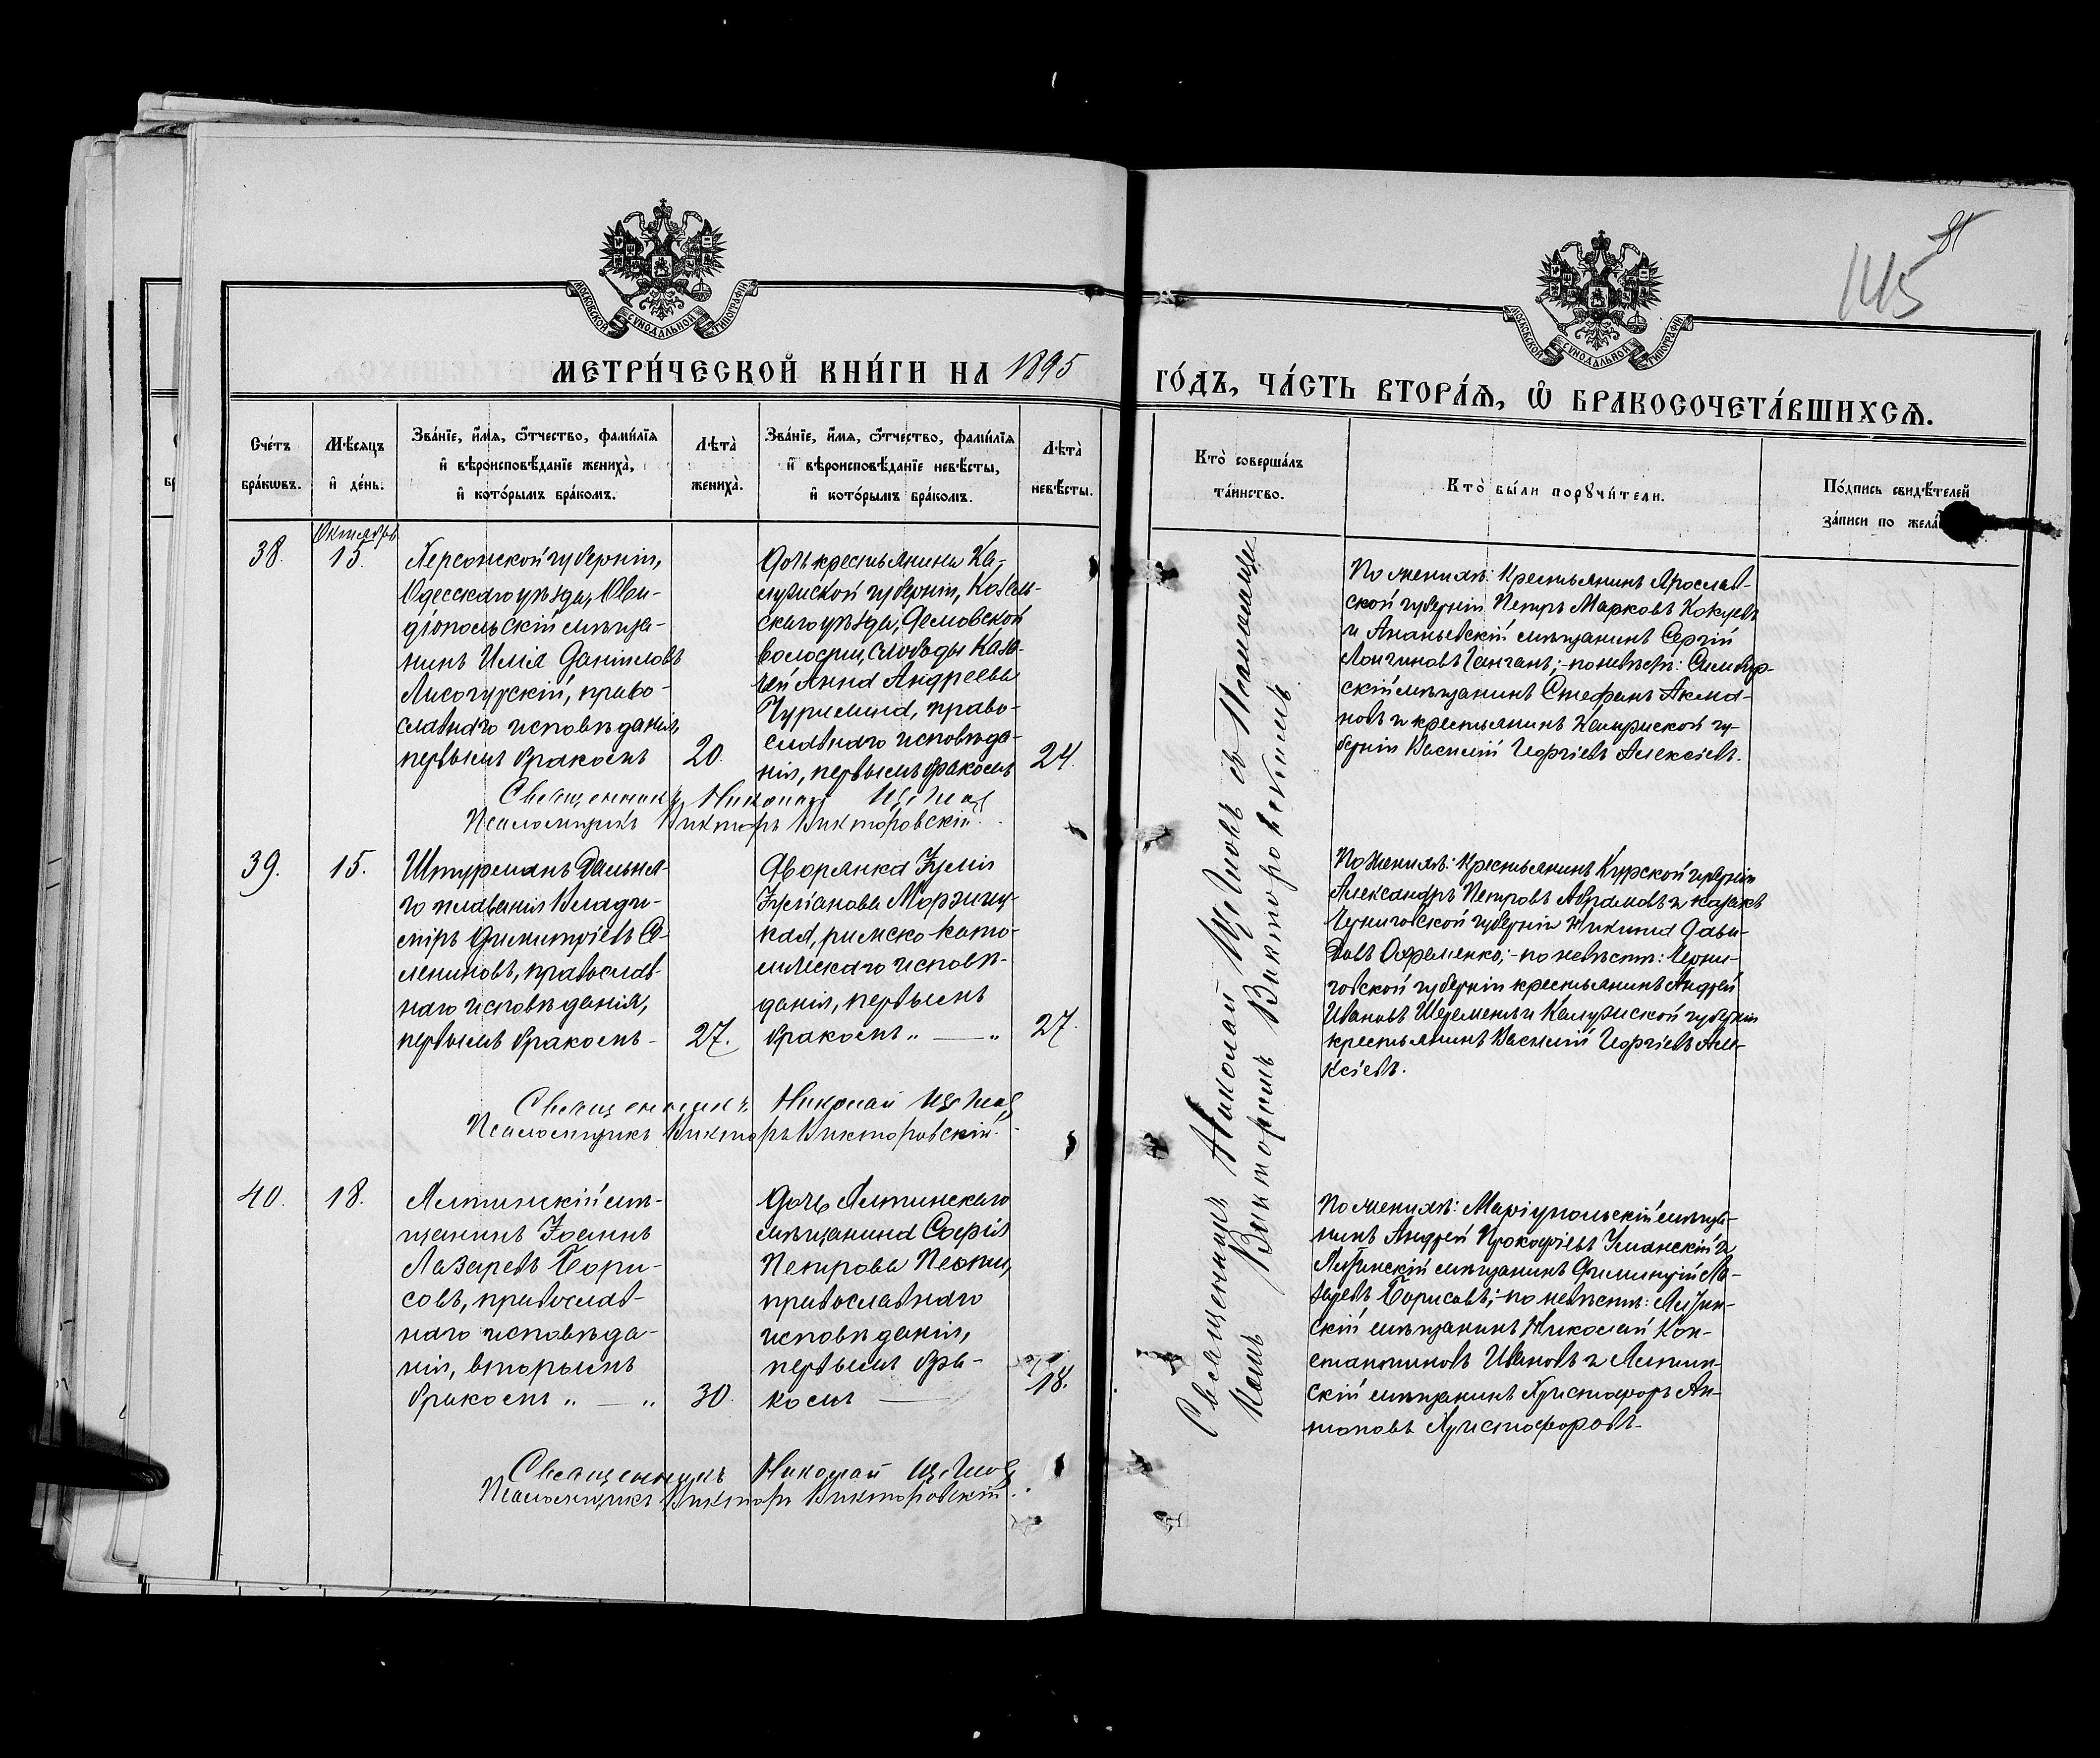 145
81
МОСКОВСКОЙ СѴНОДАЛЬНОЙ ТИПОГРАФІИ
МОСКОВСКОЙ СѴНОДАЛЬНОЙ ТИПОГРАФІИ
МЕТРИ́ЧЕСКОЙ КНИ́ГИ НА 1895
ГО́ДЪ, ЧА́СТЬ ВТОРА́Ѧ, Ѡ БРАКОСОЧЕТА́ВШИХСѦ.
Сче́тъ
бра́кѡвъ.
Мѣ́сѧцъ
и де́нь.
Зва́нїе, и́мѧ, ѻ́тчество, фами́лїѧ
и вѣроисповѣ́данїе жениха̀,
и кото́рымъ бра́комъ.
Лѣта̀
жениха̀.
Зва́нїе, и́мѧ, ѻ́тчество, фами́лїѧ
и вѣроисповѣ́данїе невѣ́сты,
и кото́рымъ бра́комъ.
Лѣта̀
невѣ́сты.
Кто̀ соверша́лъ
та́инство.
Кто̀ бы́ли порꙋчи́тели.
По́дпись свидѣ́телей
за́писи по жела́
38.
Октябрь
15.
Херсонской губерніи,
Одесскаго уѣзда, Ови-
діопольскій мѣща-
нинъ Илія Даніиловъ
Лисогурскій, право-
славнаго исповѣданія,
первымъ бракомъ
20.
Дочь крестьянина Ка-
лужской губерніи,
скаго уѣзда,
волости, слободы Каза-
чей Анна Андреева
право-
славнаго исповѣда-
нія, первымъ бракомъ
24.
По женихѣ: крестьянинъ Ярослав-
ской губерніи Петръ Марковъ
и Ананьевскій мѣщанинъ Сергій
Лонгиновъ - по невѣстѣ: Симбир-
скій мѣщанинъ Стефанъ
и крестьянинъ Калужской гу-
берніи Василій Георгіевъ Алексіевъ.
Священникъ Николай
Псаломщикъ Викторъ Викторовскій.
39.
15.
Штурманъ дальня-
го плаванія Влади-
міръ Димитріевъ Се-
мениновъ, православ-
наго исповѣданія,
первымъ бракомъ -
27.
Дворянка Іулія
Іуліанова
римско-като-
лическаго исповѣ-
данія, первымъ
бракомъ „ — „
27.
По женихѣ: крестьянинъ Курской губерніи
Александръ Петровъ Абрамовъ и казакъ
Черниговской губерніи Никита Давы-
довъ - по невѣстѣ: Черни-
говской губерніи крестьянинъ Андрей
Ивановъ и Калужской губерніи
крестьянинъ Василій Георгіевъ Але-
ксіевъ.
Священникъ Николай
Псаломщикъ Викторъ Викторовскій.
40.
18.
Ялтинскій мѣ-
щанинъ Іоаннъ
Лазаревъ Бори-
совъ, православ-
наго исповѣда-
нія, вторымъ
бракомъ „ — „
30.
Дочь Ялтинскаго
мѣщанина Софія
Петрова
православнаго
исповѣданія,
первымъ бра-
комъ —
18.
По женихѣ: Маріупольскій мѣща-
нинъ Андрей Прокофіевъ Уманскій и
Ялтинскій мѣщанинъ Димитрій Ла-
заревъ Борисовъ; - по невѣстѣ: Ялтин-
скій мѣщанинъ Николай Кон-
стантиновъ Ивановъ и Ялтин-
скій мѣщанинъ Христофоръ Ан-
тоновъ Христофоровъ.
Священникъ Николай
Псаломщикъ Викторъ Викторовскій.
Священникъ Николай съ Псаломщи-
комъ Викторомъ Викторовскимъ